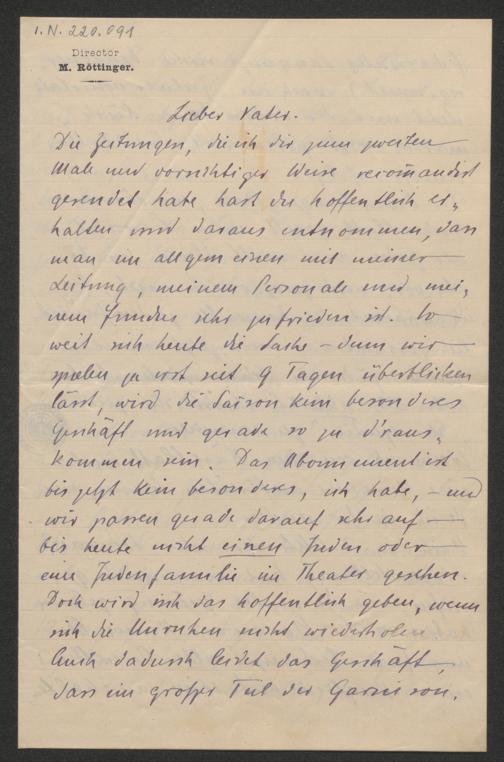 I. N. 220.091
Director
M. Röttinger.
Lieber Vater.
Die Zeitungen, die ich dir zum zweiten
Male und vorsichtiger Weise recom̅andirt
gesendet habe hast du hoffentlich er„
halten und daraus entnommen, dass
man im allgemeinen mit meiner
Leitung, meinem Personale und mei„
nem Fundus sehr zufrieden ist. So
weit sich heute die Sache – denn wir
spielen ja erst seit 9 Tagen überblicken
lässt, wird die Saison kein besonderes
Geschäft und gerade so zu d'raus„
kommen sein. Das Abonnement ist
bis jetzt kein besonderes, ich habe, – und
wir passen gerade darauf sehr auf –
bis heute nicht einen Juden oder
eine Judenfamilie im Theater gesehen.
Doch wird sich das hoffentlich geben, wenn
sich die Unruhen nicht wiederholen
Auch dadurch leidet das Geschäft,
dass ein großer Teil der Garnison,